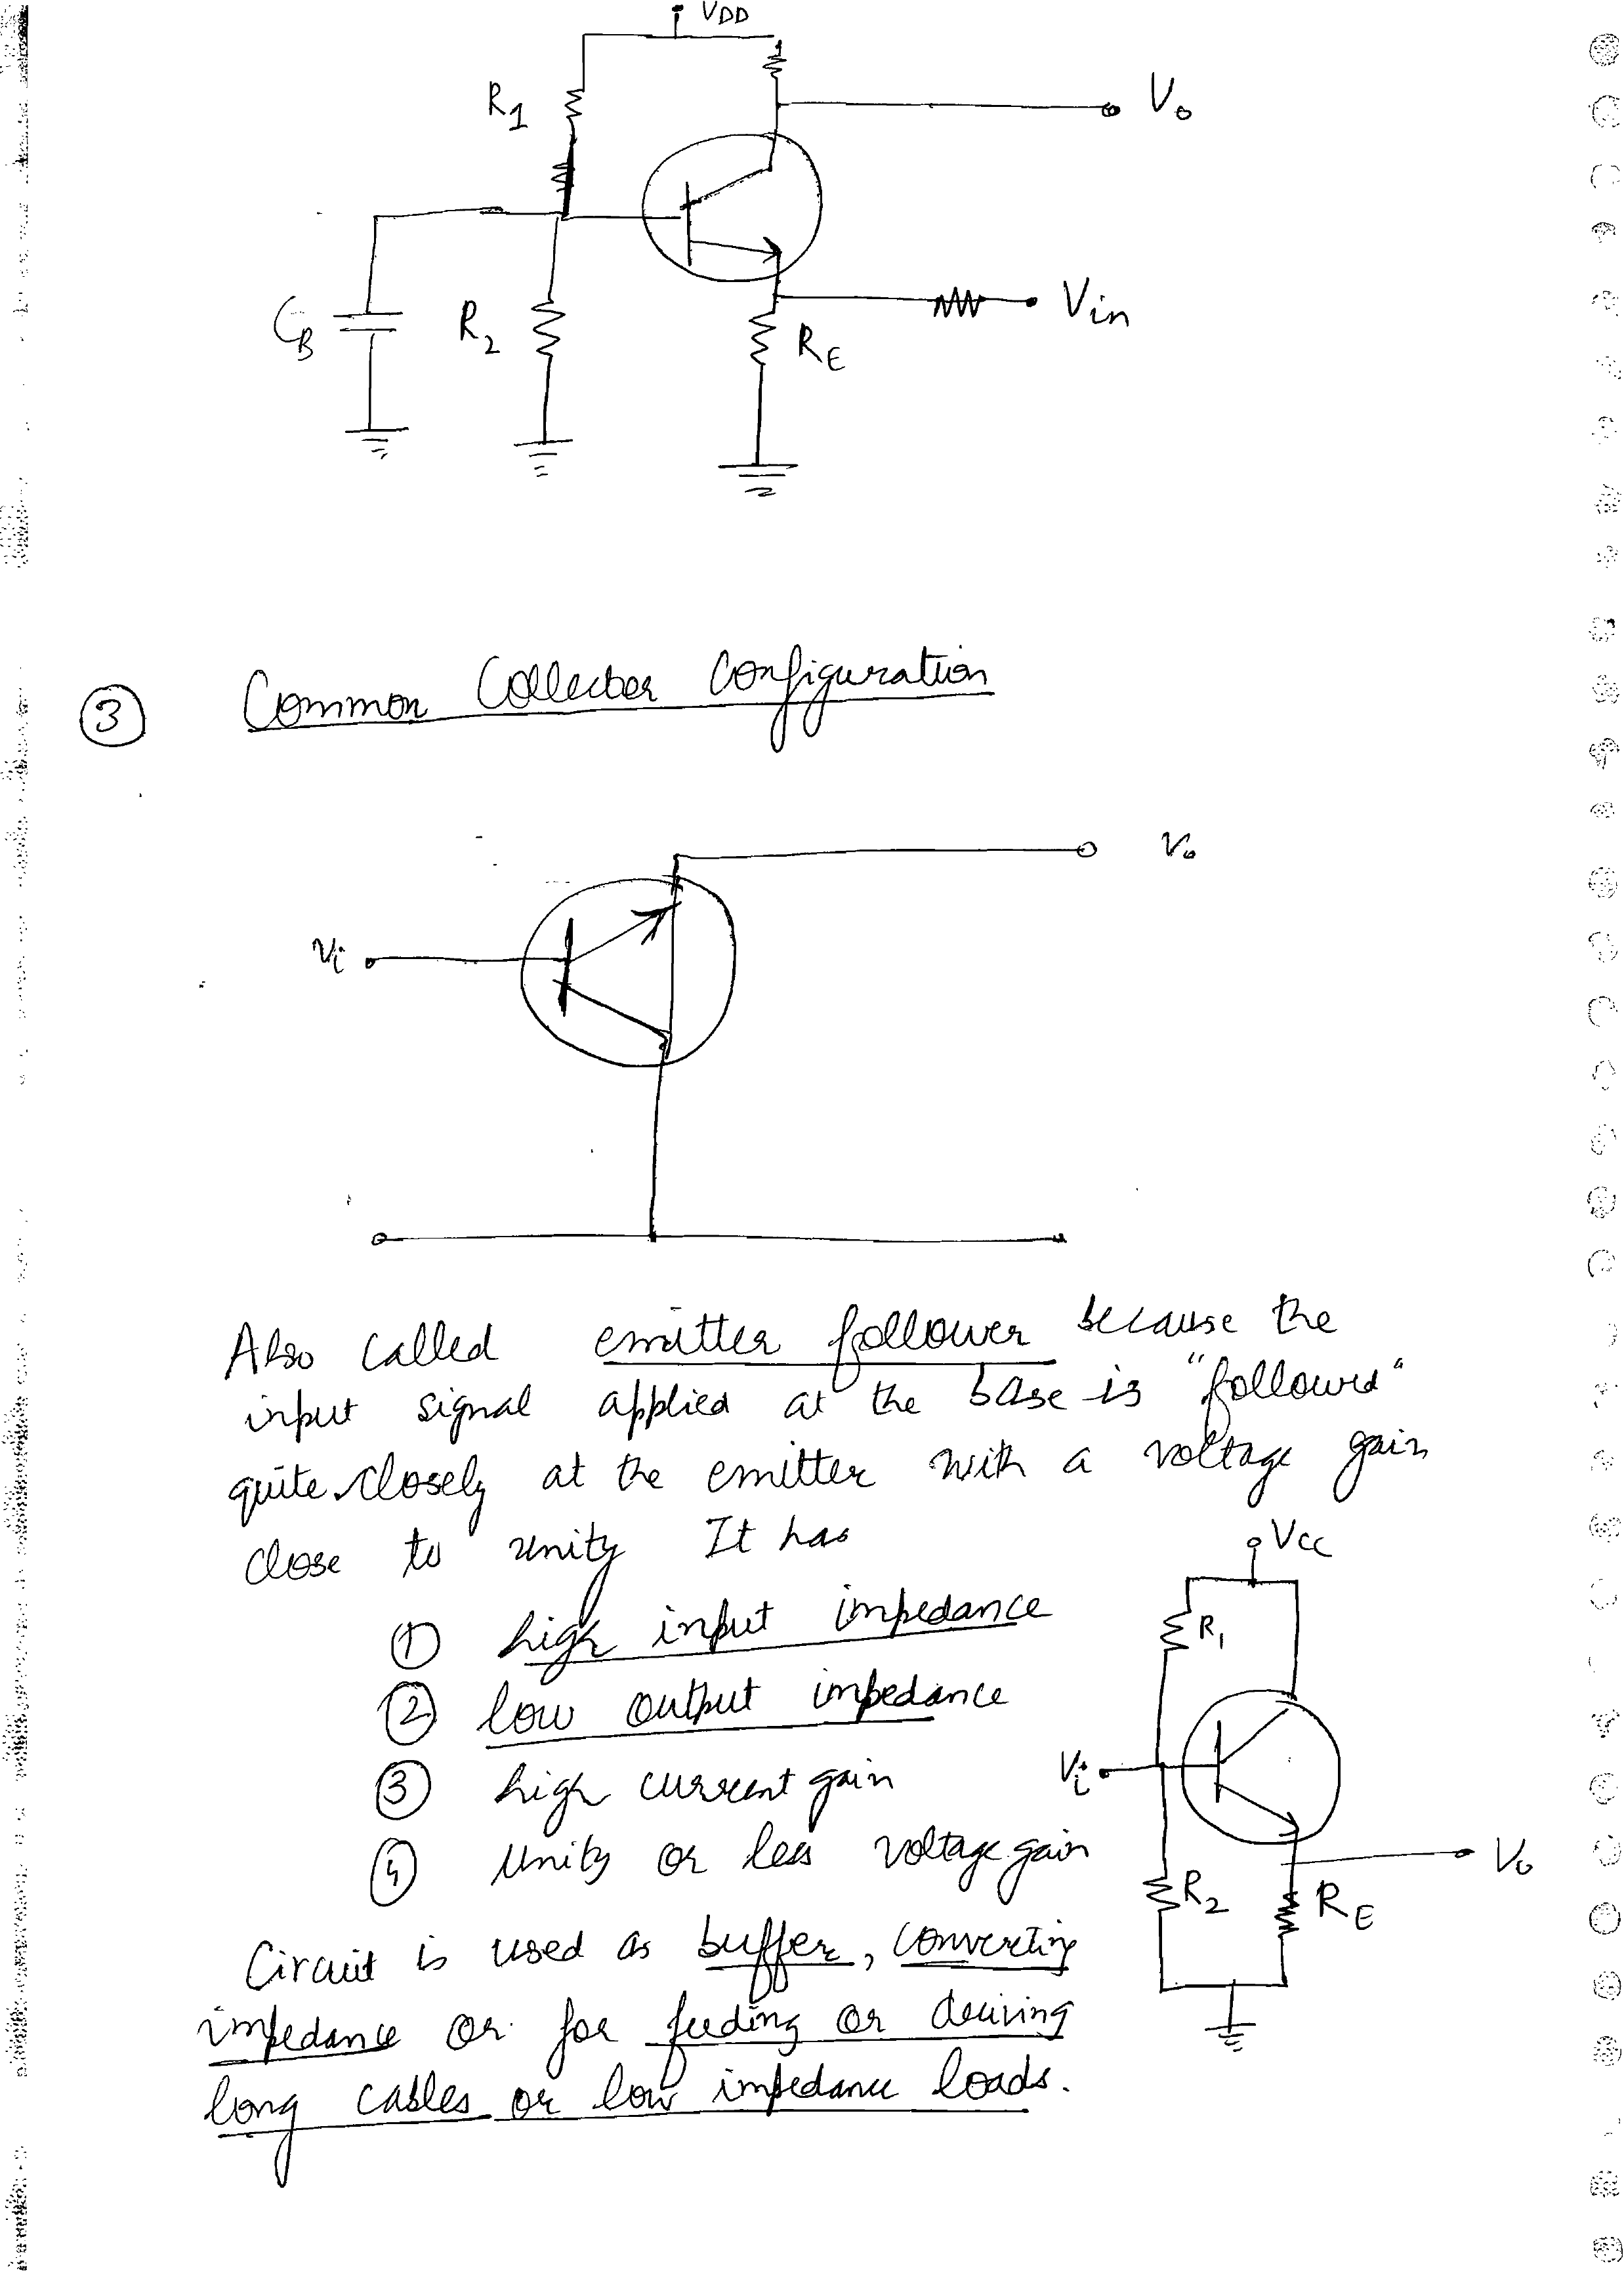 VDD
R1
Vo
CB
R2
RE
Vin
③ Common Collector Configuration
Vo
Vi
Also called emitter follower because the
input signal applied at the base is "followed"
quite closely at the emitter with a voltage gain
close to unity It has
VCC
① high input impedance
R1
② low output impedance
③ high current gain
Vi
④ Unity or less voltage gain
Vo
R2
RE
Circuit is used as buffer, converting
impedance or for feeding or driving
long cables or low impedance loads.